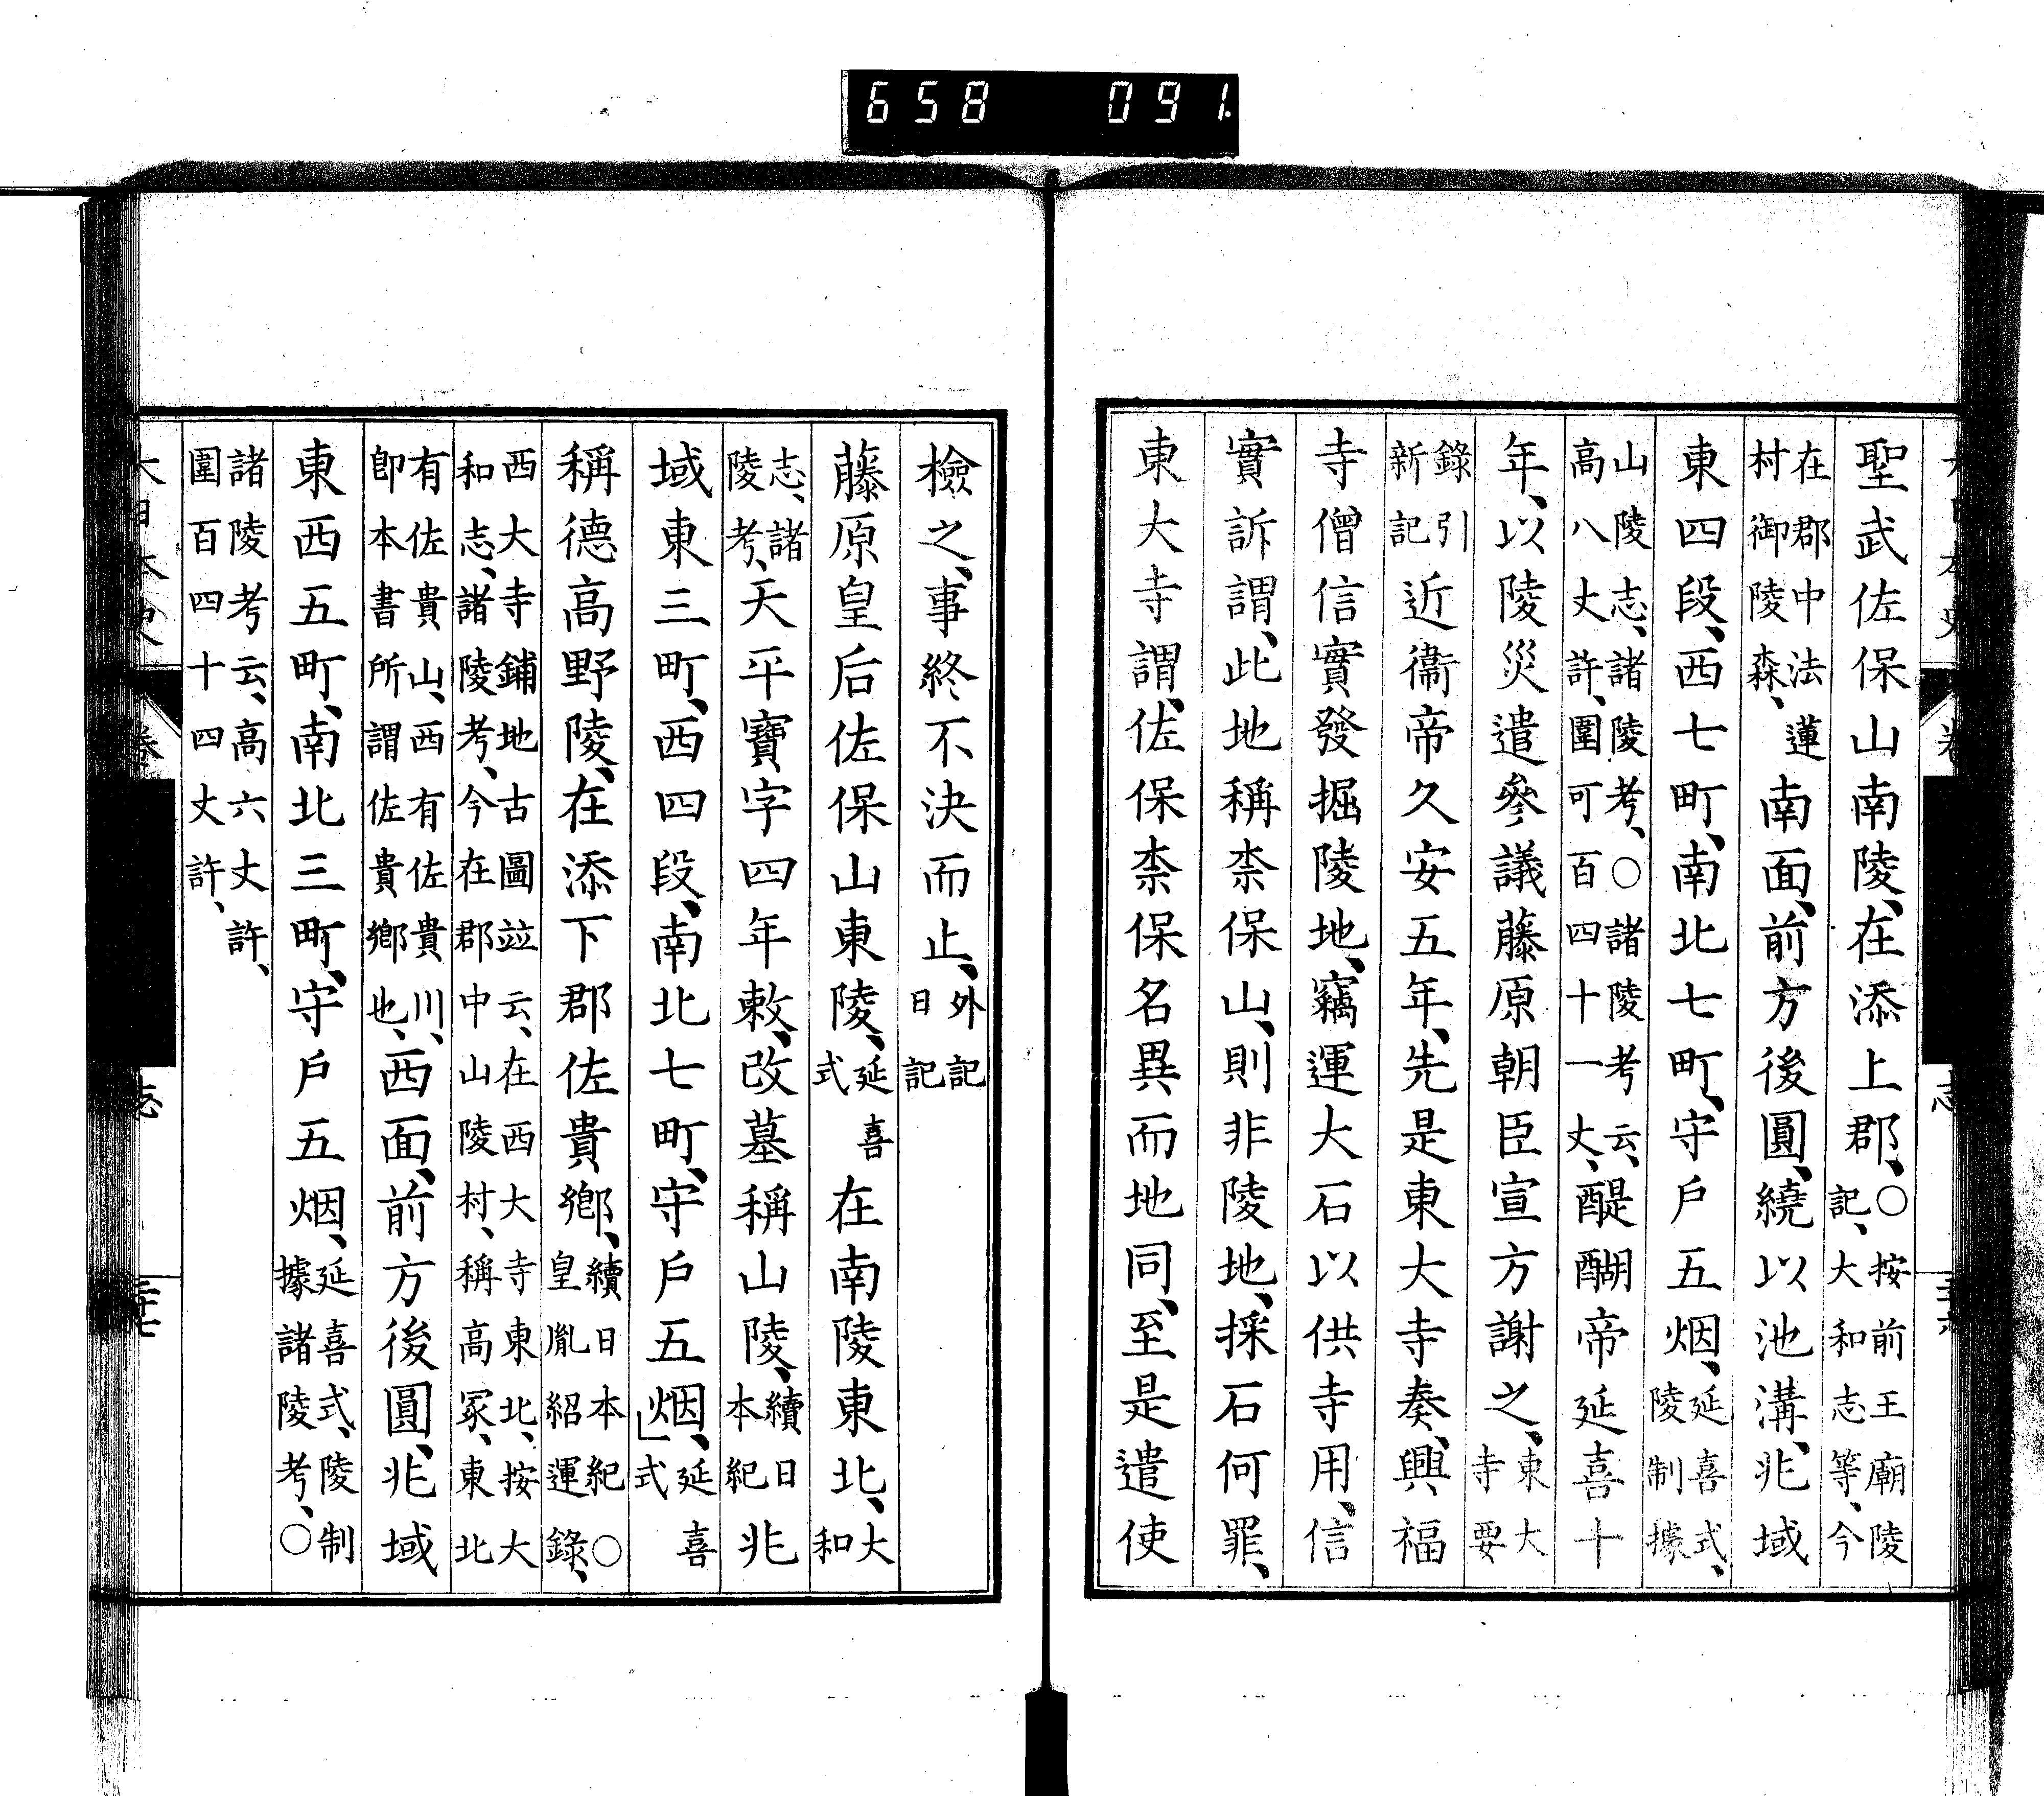 658 091.
聖武佐保山南陵、在添上郡、○按前王廟陵記、大和志等、今
在郡中法蓮村御陵森、南面、前方後圓、繞以池溝、兆域
東四段、西七町、南北七町、守戶五烟、延喜式、陵制據
山陵志、諸陵考、○諸陵考云、高八丈許、圍可百四十一丈、醍醐帝延喜十
年、以陵災遣參議藤原朝臣宣方謝之、東大寺要
錄引新記近衞帝久安五年、先是東大寺奏、興福
寺僧信實發掘陵地、竊運大石以供寺用、信
實訴謂、此地稱柰保山、則非陵地、採石何罪、
東大寺謂、佐保柰保名異而地同、至是遣使
檢之、事終不決而止、外記日記
藤原皇后佐保山東陵、延喜式在南陵東北、大和
志、諸陵考、天平寶字四年敕、改墓稱山陵、續日本紀兆
域東三町、西四段、南北七町、守戶五烟、延喜式
稱德高野陵、在添下郡佐貴鄕、續日本紀○皇胤紹運錄、
西大寺鋪地古圖竝云、在西大寺東北、按大和志、諸陵考、今在郡中山陵村、稱高冢、東北
有佐貴山、西有佐貴川、卽本書所謂佐貴鄕也、西面、前方後圓、兆域
東西五町、南北三町、守戶五烟、延喜式、陵制據諸陵考、○
諸陵考云、高六丈許、圍百四十四丈許、
志